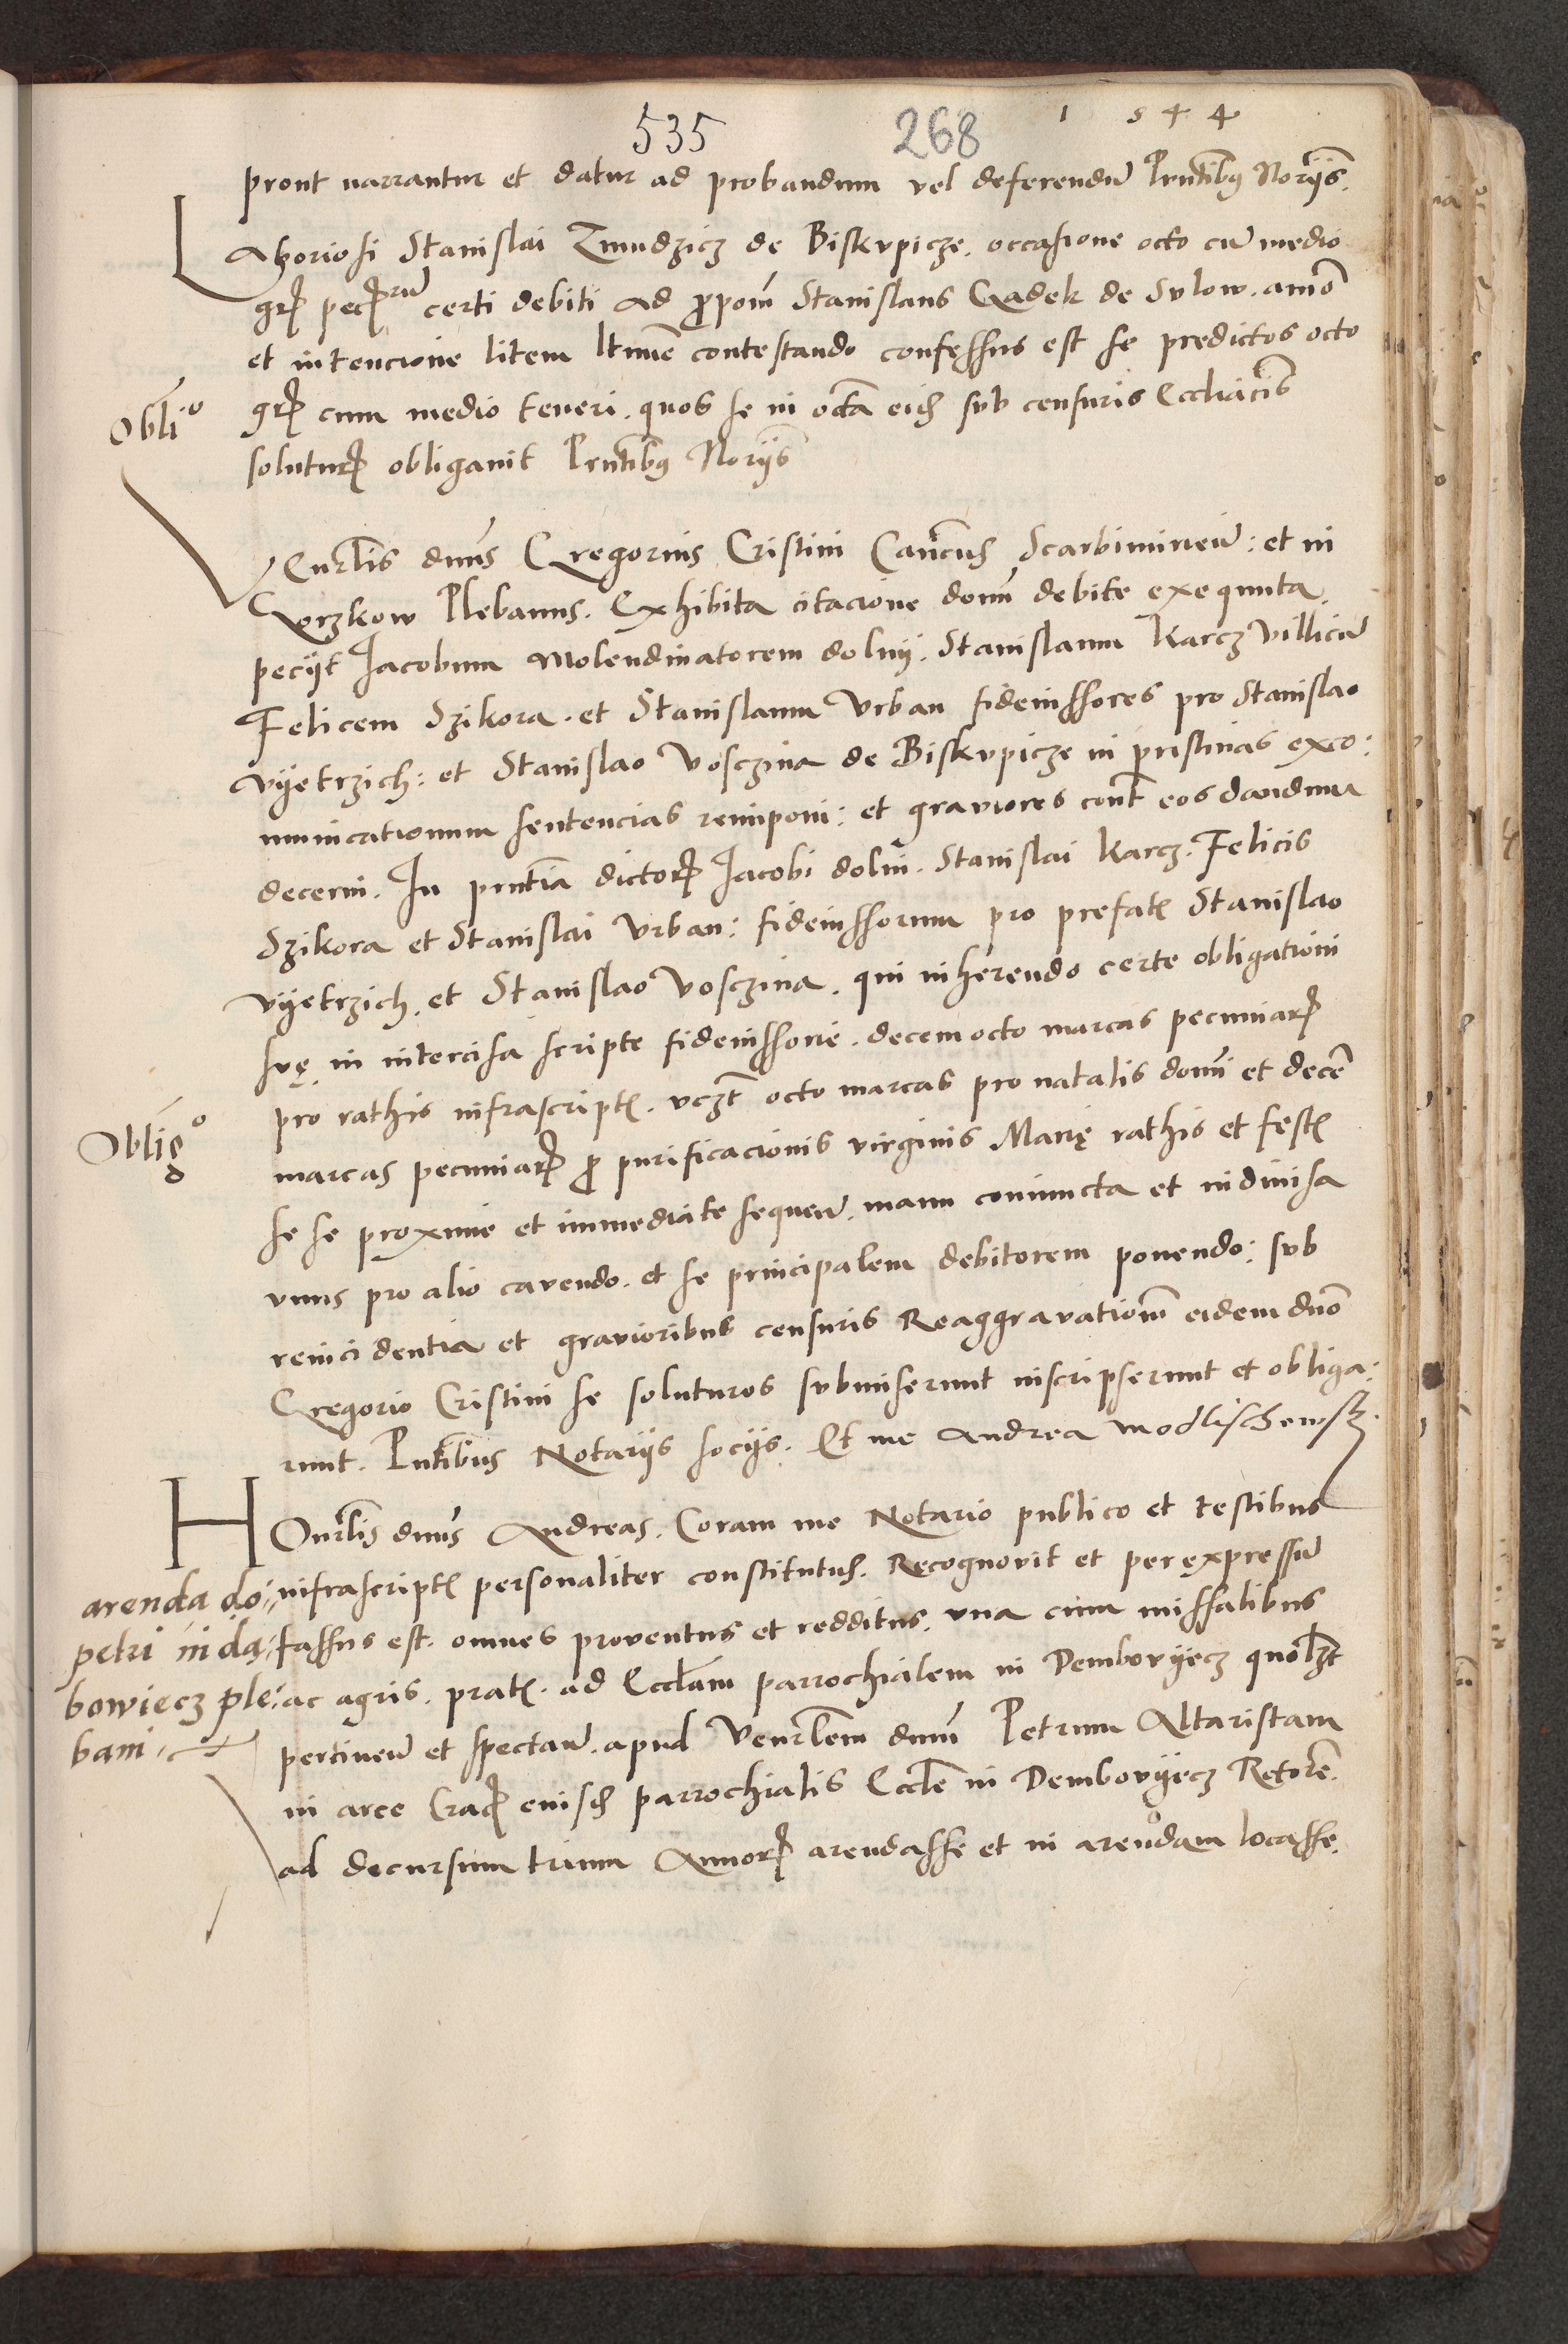 535 268 1 5 4 4
pront narrantur et datur ad probandum vel deferendū Pntibus Noriis.
Laboriosi Stanislai Zmudzicz de Biskvpicze. occasione octo cū medio
grꝭ pecꝭrū certi debiti ad ꝓpom̄ Stanislaus Gadek de Svlow. animo
et intencione litem ltimē contestando confessus est se predictos octo
Oblio
grꝭ cum medio teneri. quos se in octā eidꝭ svb censuris Eccliacīs
soluturꝭ obligauit Pntibus Noriis
Venrlis dnus Gregorius Cristini Canōcus Scarbimirieñ: et in
Gorzkow Plebanus. Exhibita citacione domī debite exequuta
peciit Jacobum Molendinatorem dolnij. Stanislaum Karcz villicū
Felicem Szikora. et Stanislaum Vrban fideiussores pro Stanislao
vyetrzich: et Stanislao Vosczina de Biskvpicze in pristinas exco:
municationum sentencias reimponi: et graviores cont eos dandum
decerni. In pntia dictorꝭ Jacobi dolni. Stanislai Karcz. Felicis
Szikora et Stanislai Vrban: fideiussorum pro prefatꝭ Stanislao
vyetrzich. et Stanislao Vosczina. qui inherendo certe obligationi
svę in intercisa scripte fideiussorie. decem octo marcas pecuniarꝭ
pro rathis infrascriptꝭ. vczt octo marcas pro natalis domī et decē
Oblig̊o
marcas pecuniarꝭ ꝓ purificacionis virginis Marię rathis et festꝭ
se se proxime et immediate sequeñ. manu coniuncta et indiuisa
vnus pro alio cavendo. et se principalem debitorem ponendo: svb
reincidentia et gravioribus censuris Reaggravationum eidem dno
Gregorio Cristini se soluturos svbmiserunt inscripserunt et obliga:
runt. Pntibus Notariis sociis. Et me Andrea Modlischewsky.
HOnrlis dnus Andreas. Coram me Notario publico et testibus
arenda do: infrascriptꝭ personaliter constitutus. Recognovit et per expressū
petri in dą: fassus est. omnes proventus et redditus. vna cum missalibus
bowiecz ple: ac agris. pratꝭ. ad Eccliam parrochialem in Dembovyecz quolzt
bani. pertineñ et spectañ. apud Venrlem dnum Petrum Altaristam
in arce Cracꝭ eiusdꝭ parrochialis Ecclie in Dembovyecz Retorē.
ad decursum trium Annorꝭ arendasse et in arendam locasse.